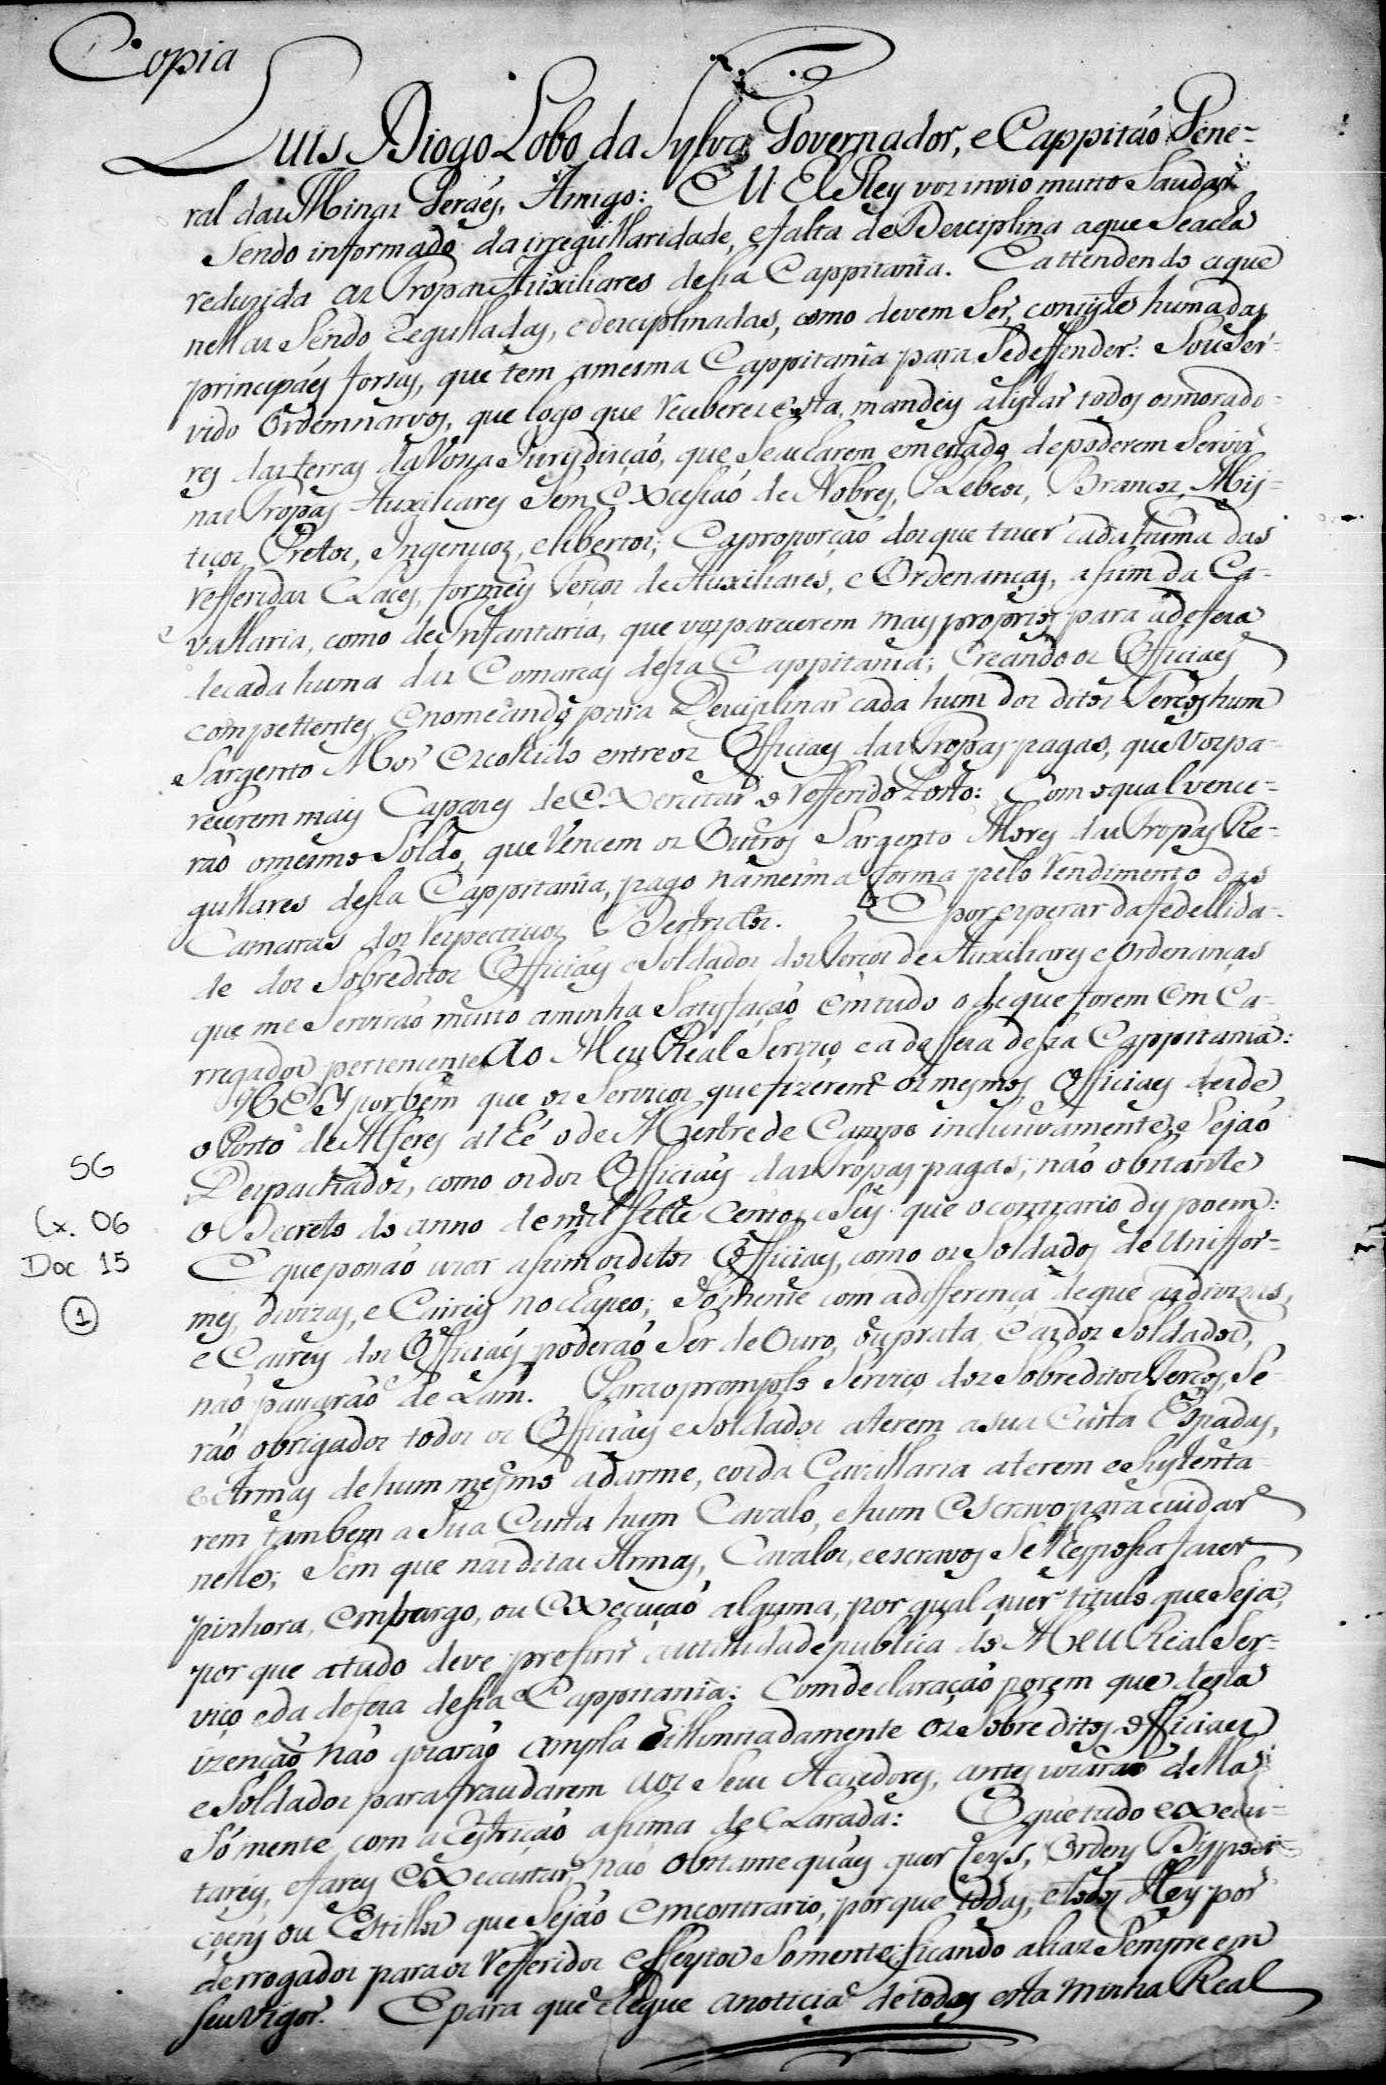 Copia
Luis Diogo Lobo da Sylva Governador, e Cappitão Gene-
ral das Minas Geráes, Amigo: EU ElRey vos invio muito Saudar
Sendo informado da irregullaridade, e falta de Desciplina aque Seacha
reduzida as Tropas Auxiliares desta Cappitanîa. E attendendo aque
nellas Sendo Regulladas, e desciplinadas, como devem Ser, consiste huma das
principáes forsas, que tem amesma Cappitanîa para Sedeffender: Sou Ser-
vido Ordennarvos, que logo que receberes esta, mandeis alistar todos os morado-
res das terras da Vossa Jurysdiçaõ, que Seacharem emestado depoderem Servir
nas Tropas Auxiliares Sem Excessaõ de Nobres, Plebeos, Brancos, Mis-
tiços, Pretos, Ingenuos, e libertos; E aproporçaõ dos que tiver cada huma das
refferidas Claces, formeis Terços de Auxiliares, e Ordenanças, asim da Ca-
vallaria, como de Infantaria, que vos parecerem mays proprios para adefeza
decada huma das Comarcas desta Cappitanîa; Creando os Officiaes
compettentes, e nomeando para Desciplinar cada hum dos ditos Terços hum
Sargento Mor Escolhido entre os Officiaes das Tropas pagas, que Vospa-
recerem mais Capazes de Exercitar o refferido Posto: Com oqual vence-
raõ omesmo Soldo, que Vencem os Outros Sargento Mores das Tropas Re-
gullares desta Cappitanîa, pago namesma forma pelo Rendimento das
Camaras dos respectivos Destrictos. E por esperar da fedellida-
de dos Sobreditos Officiaes e Soldados dos Terços de Auxiliares e Ordenanças
que me Serviraõ muito aminha Satisfaçaõ Emtudo o deque forem Em Ca-
rregados pertencente Ao Meu Real Serviço e a deffeza desta Cappitanîa:
HEY por bem que os Serviços que fizerem os mesmos Officiaes desde
o Posto de Alferes atEé o de Mestre de Campo incluzivamente Sejaõ
Despachados, como os dos Officiaes das Tropas pagas; naõ obstante
o Decreto do anno demil sette Centos e Seis que ocontrario dispoem:
E que possaõ uzar asim os ditos Officiaes, como os Soldados de Uniffor-
mes, divizas, e Cairéis no chapeo; Sómente com adifferença deque as divizas,
e Caireis dos Officiaes poderaõ Ser de Ouro, ou prata, E as dos Soldados,
naõ passaraõ de Lam. Para oprompto Serviço dos Sobreditos Terços, Se-
raõ obrigados todos os Officiaes e Soldados aterem a sua Custa Espadas,
e Armas dehum mesmo adarme, e os da Cavallaria aterem e Sustenta-
rem tambem a Sua Custa hum Cavalo, e hum Escravo para cuidar
nelle; Sem que nas ditas Armas, Cavalos, e escravos Selhes possa fazer
pinhora, Embargo, ou Execuçaõ alguma, por qual quer titulo que Seja,
por que atudo deve prefirir autilidade publica do MEU Real Ser-
viço e da defeza desta Cappitania: Com declaraçaõ porem que desta
izençaõ naõ gozaraõ Ampla Eillimitadamente os Sobreditos officiaes
e Soldados para fraudarem aos Seus Acredores, antes uzaraõ della
Sómente com a restriçaõ asima deClarada: O que tudo execu-
tareis, e fareis Executar, naõ Obstante quaes quer Leys, Ordens Dispozi-
çoens ou Estillos que Sejaõ Emcontrario, porque todas, e todos Hey por
derrogados para os refferidos effeytos Somente, ficando aliaz Sempre em
seu vigor. E para que chegue anoticia de todos esta minha Real
SG
Cx. 06
Doc 15
1